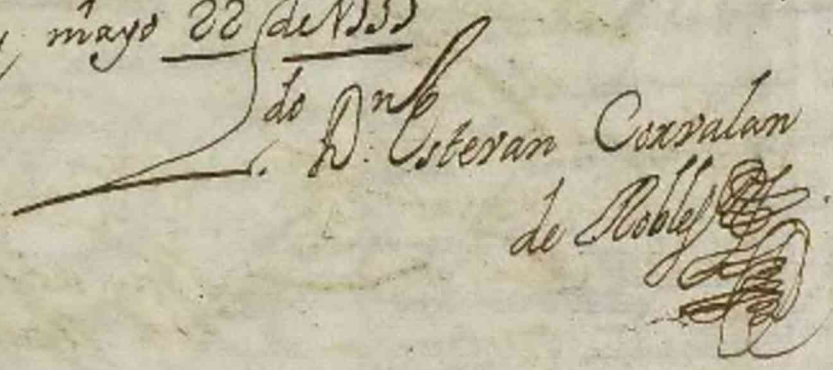 y mayo 22 de 1733
do Dn. Estevan Corvalan
de Robles